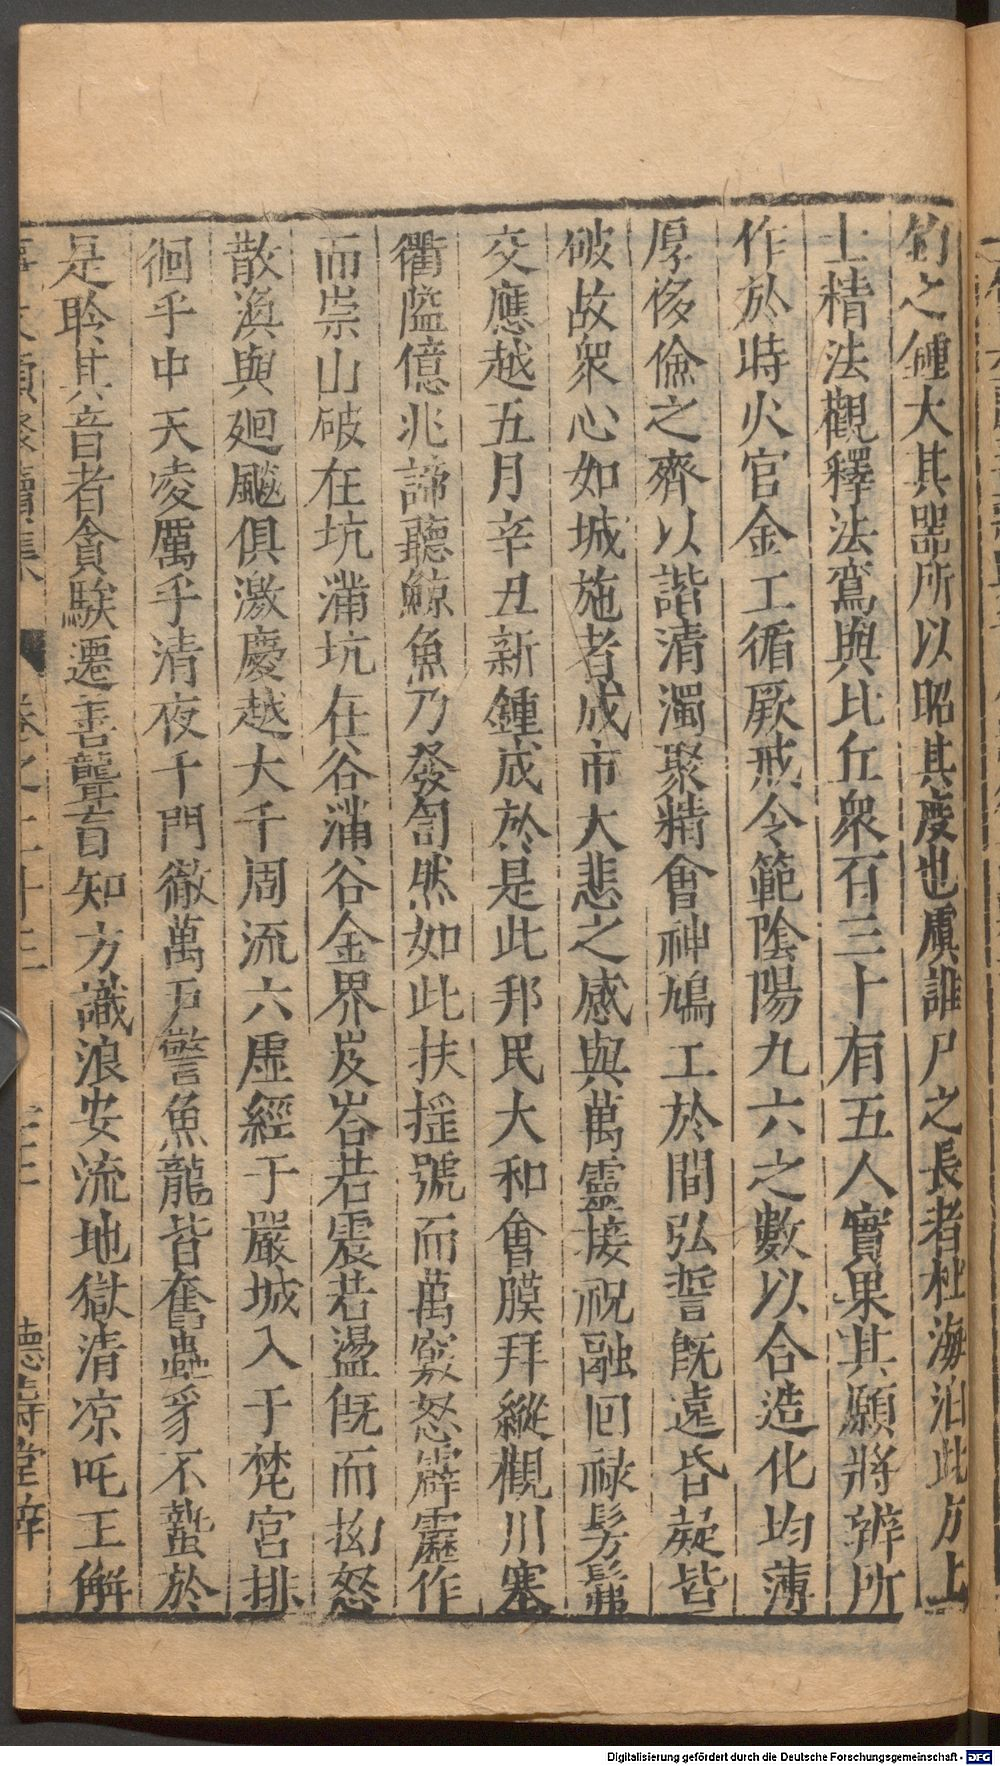 鈞之鍾大其器所以昭其度也虞誰尸之長者杜海泊此方上
士精法觀釋法鸞與比丘衆百三十有五人實果其願將辨所
作於時火官金工循厥戒令範隂陽九六之數以合造化均薄
厚侈儉之齊以諧清濁聚精會神鳩工於間弘誓旣遠昏疑皆
破故衆心如城施者成市大悲之感與萬靈接祝融囘祿髣髴
交應越五月辛丑新鍾成於是此邦民大和會膜拜縱觀川塞
衢隘億兆諦聽鯨魚乃發訇然如此扶揺號而萬竅怒霹靂作
而崇山破在坑滿坑在谷滿谷金界岌峇若震若盪旣而拗怒
散渙與廻飈俱激慶越大千周流六虛經于嚴城入于梵宮排
徊乎中天凌厲乎清夜千門徹萬戸警魚龍皆奮蟲豸不蟄於
是聆其音者貪騃遷善聾盲知方識浪安流地獄清凉吒王解
文類聚續集 卷之二十三 德壽堂梓
Digitalisierung gefördert durch die Deutsche Forschungsgemeinschaft - DFG